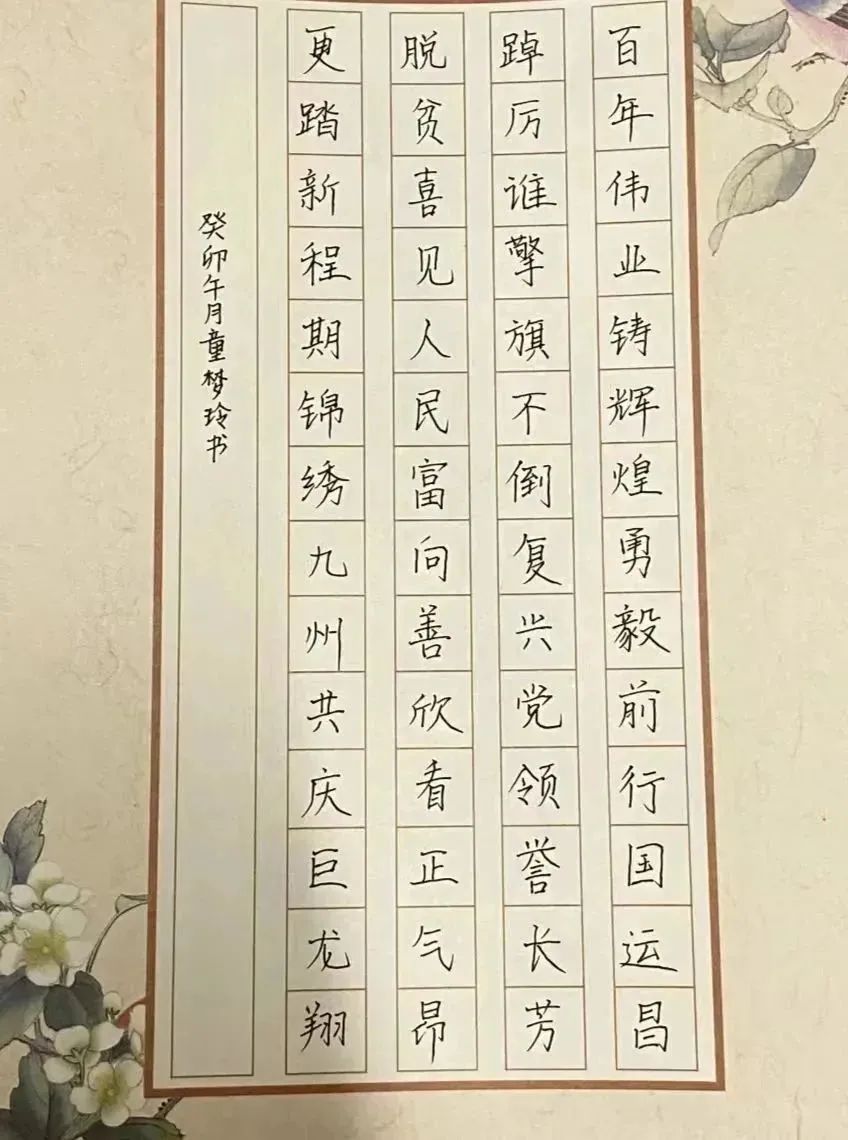 百年伟业铸辉煌勇毅前行国运昌
踔厉谁擎旗不倒复兴党领誉长芳
脱贫喜见人民富向善欣看正气昂
更踏新程期锦绣九州共庆巨龙翔
癸卯午月童梦玲书